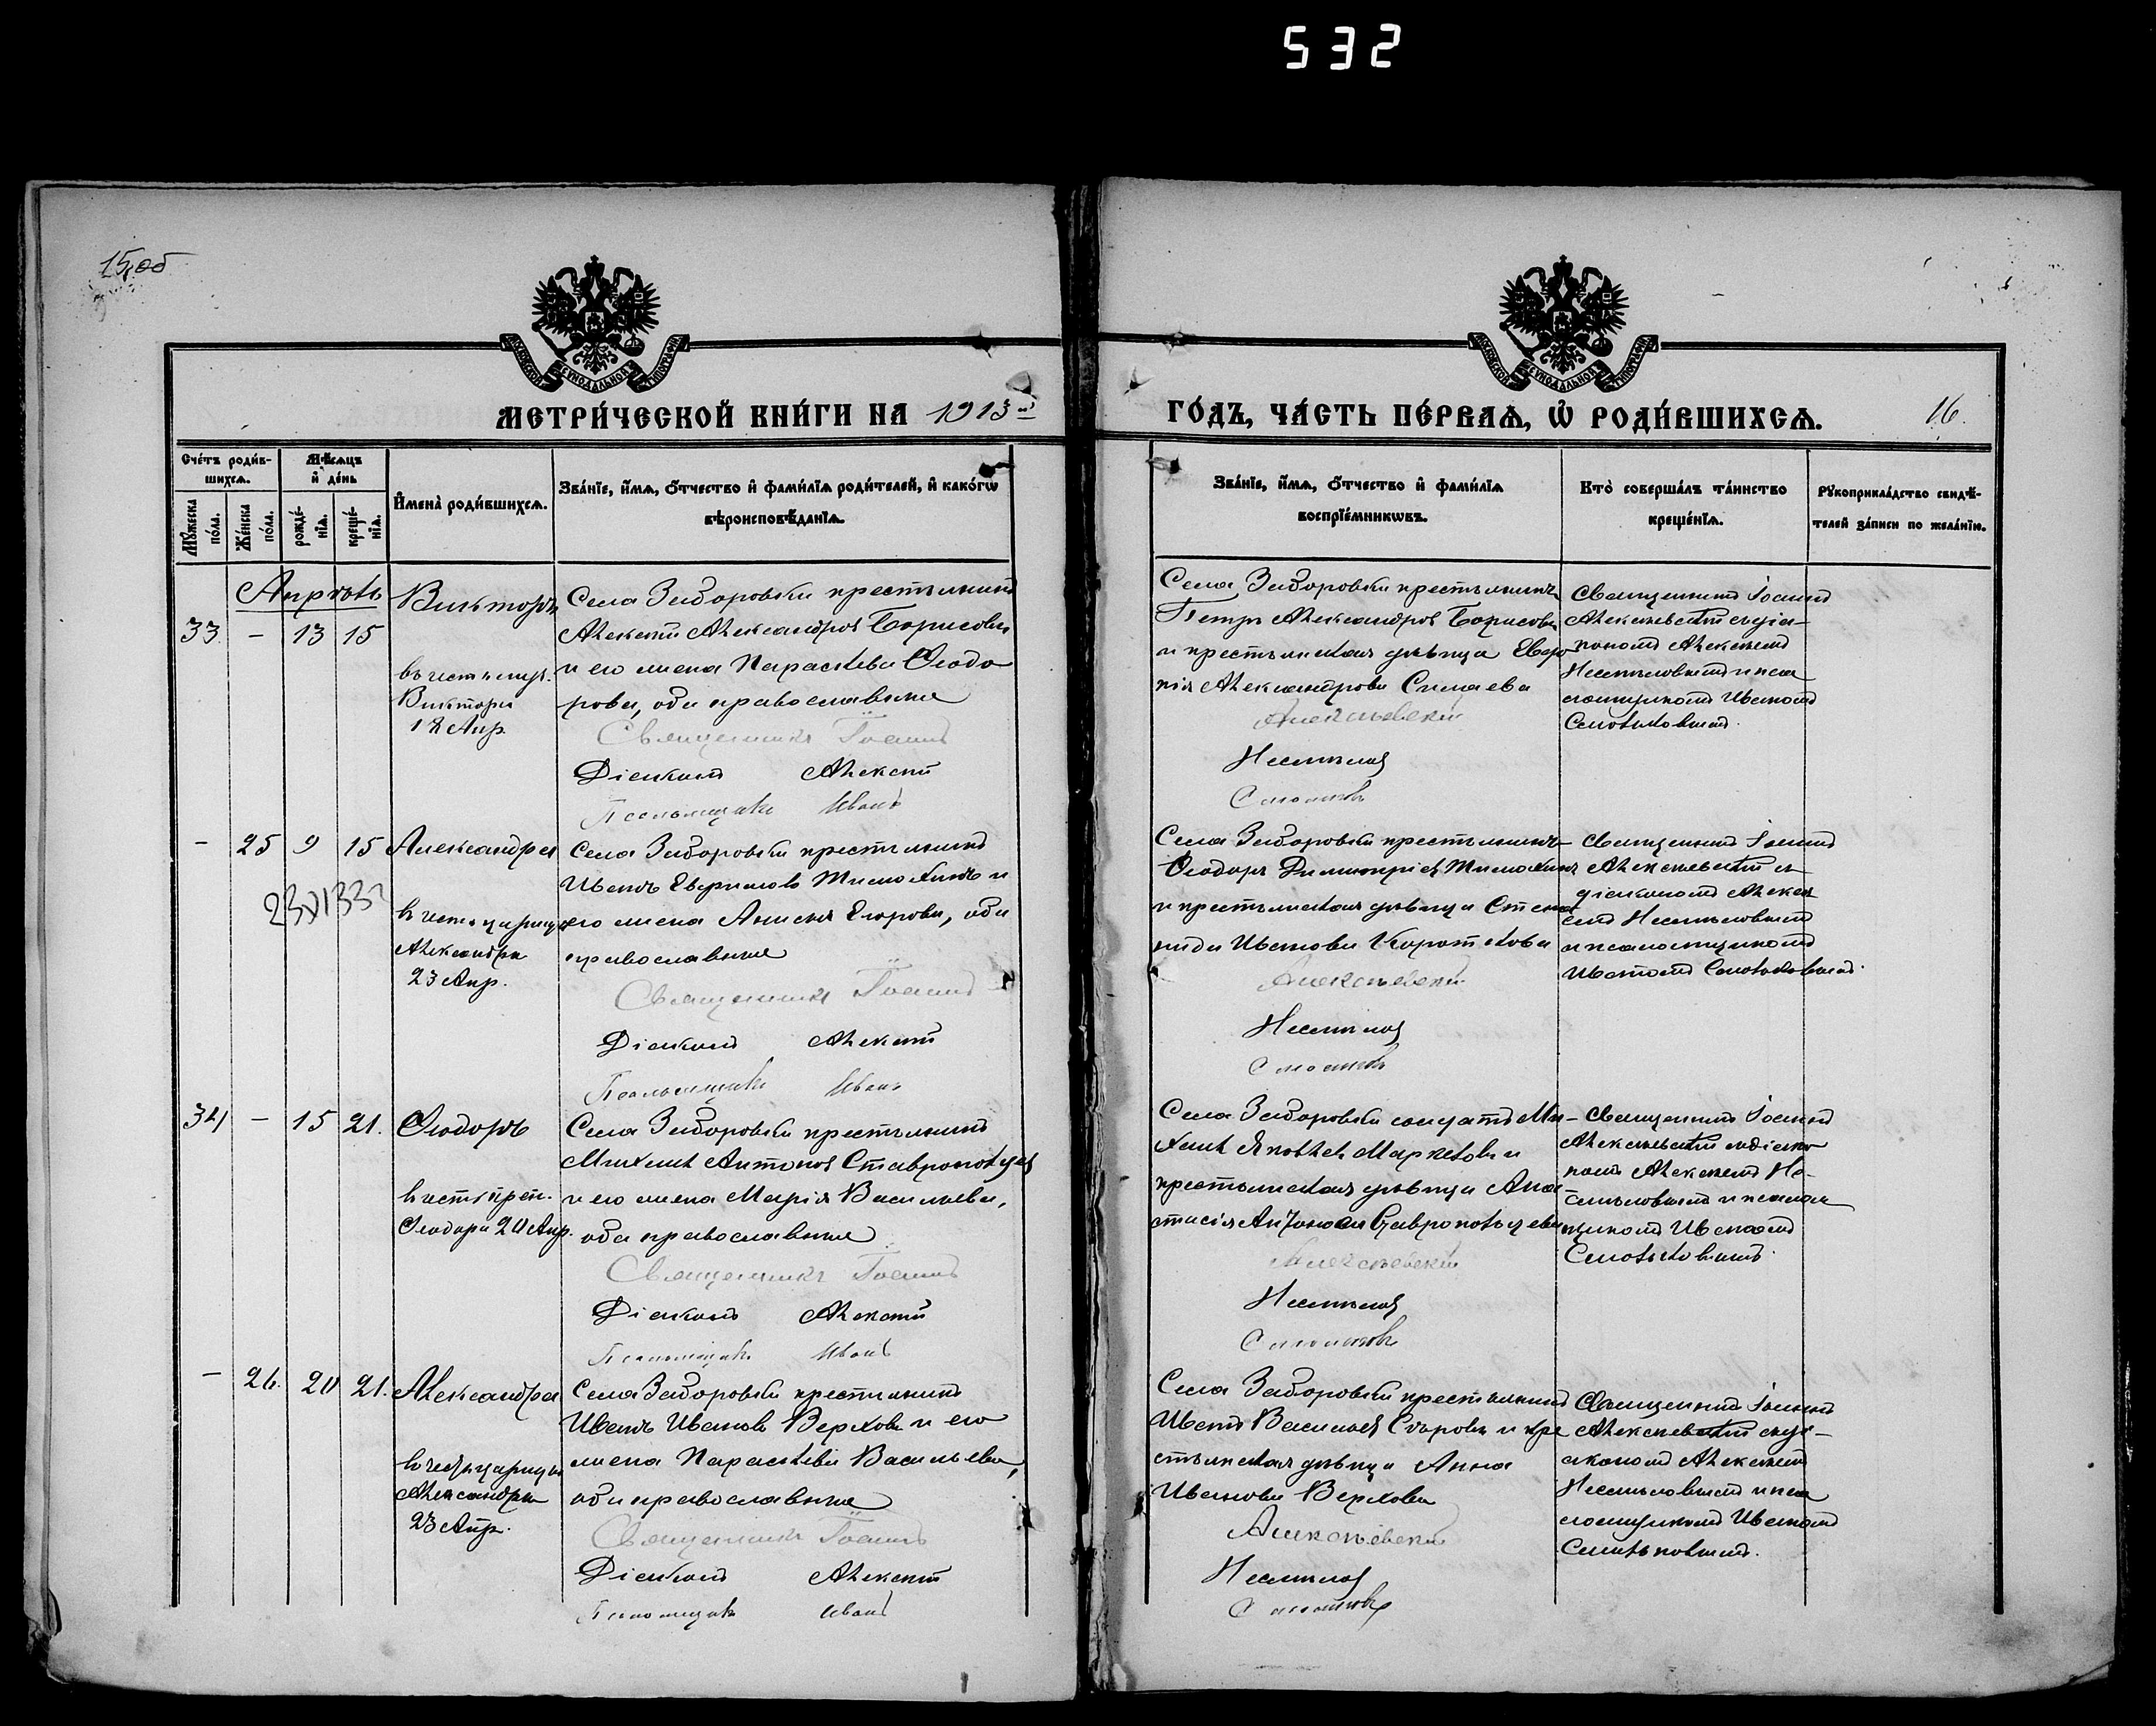 532
15 об
МЕТРИ́ЧЕСКОЙ КНИ́ГИ НА 1913 й
Сче́тъ роди́в-
шихсѧ.
Мѣ́сѧцъ
и҆ де́нь
И҆мена̀ роди́вшихсѧ.
Зва́нїе, и҆́мѧ, ѻ҆́тчество и҆ фами́лїѧ роди́телей, и҆ како́гѡ
вѣроисповѣ́данїѧ.
Мꙋ́жеска
по́ла.
Же́нска
по́ла.
рожде́-
нїѧ.
креще́-
нїѧ.
Апрѣль
33. – 13 15
Викторъ
въ честь муч.
Виктора
18 Апр.
Села Заборовки крестьянинъ
Алексѣй Александровъ Борисовъ
и его жена Параскева Ѳеодо
рова, оба православные
Священникъ Іоаннъ
Діаконъ Алексѣй
Псаломщикъ Иванъ
– 25 9 15
Александра
въ честь царицы
Александры
23 Апр.
Села Заборовки крестьянинъ
Иванъ Евфимовъ Тимохинъ и
его жена Анисия Егорова, оба
православные
Священникъ Іоаннъ
Діаконъ Алексѣй
Псаломщикъ Иванъ
34 – 15 21.
Ѳеодоръ
въ честь преп.
Ѳеодора 20 Апр.
Села Заборовки крестьянинъ
Михаилъ Антоновъ Ставропольцевъ
и его жена Марія Васильева,
оба православные
Священникъ Іоаннъ
Діаконъ Алексѣй
Псаломщикъ Иванъ
– 26. 20 21.
Александра
въ честь царицы
Александры
23 Апр.
Села Заборовки крестьянинъ
Иванъ Ивановъ Верховъ и его
жена Параскева Васильева,
оба православные
Священникъ Іоаннъ
Діаконъ Алексѣй
Псаломщикъ Иванъ
ГО́ДЪ, ЧА́СТЬ ПЕ́РВАѦ, Ѡ҆ РОДИ́ВШИХСѦ.
16.
Зва́нїе, и҆́мѧ, ѻ҆́тчество и҆ фами́лїѧ
воспрїе́мникѡвъ.
Кто̀ соверша́лъ та́инство
креще́нїѧ.
Рꙋкоприкла́дство свидѣ́-
телей за́писи по жела́нїю.
Села Заборовки крестьянинъ
Петръ Александровъ Борисовъ
и крестьянская дѣвица Евдо
кія Александрова Симаева
Алексѣевскій
Несмѣловъ
Смольковъ
Священникъ Іоаннъ
Алексѣевскій съ діа-
кономъ Алексѣемъ
Несмѣловымъ и пса
ломщикомъ Иваномъ
Смольковымъ.
Села Заборовки крестьянинъ
Ѳеодоръ Димитріевъ Тимохинъ
и крестьянская дѣвица Степа
нида Иванова Короткова
Алексѣевскій
Несмѣловъ
Смольковъ
Священникъ Іоаннъ
Алексѣевскій съ
діакономъ Алексѣ
емъ Несмѣловымъ
и псаломщикомъ
Иваномъ Смольковымъ.
Села Заборовки солдатъ Ми-
хаилъ Яковлевъ Маркеловъ и
крестьянская дѣвица Ана
стасія Антонова Ставропольцева
Алексѣевскій
Несмѣловъ
Смольковъ
Священникъ Іоаннъ
Алексѣевскій съ діако
номъ Алексѣемъ Не-
смѣловымъ и псалом
щикомъ Иваномъ
Смольковымъ.
Села Заборовки крестьянинъ
Иванъ Васильевъ Егоровъ и кре
стьянская дѣвица Анна
Иванова Верхова
Алексѣевскій
Несмѣловъ
Смольковъ
Священникъ Іоаннъ
Алексѣевскій съ ді-
акономъ Алексѣемъ
Несмѣловымъ и пса
ломщикомъ Иваномъ
Смольковымъ.